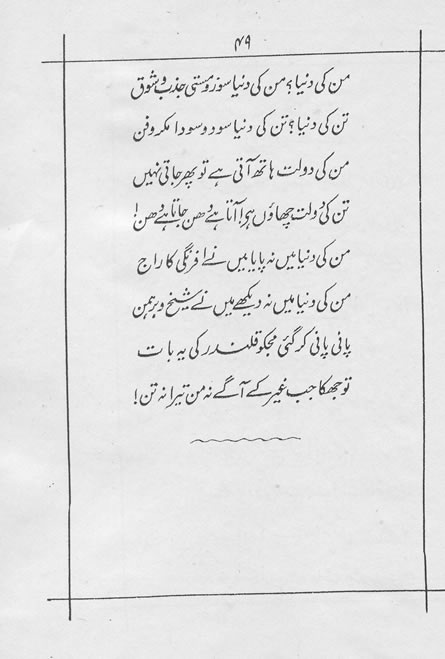 ۴۹
من کی دنیا؟ من کی دنیا سوز و مستی جذب و شوق
تن کی دنیا؟ تن کی دنیا سود و سودا مکر و فن
من کی دولت ہاتھ آتی ہے تو پھر جاتی نہیں
تن کی دولت چھاؤں ہے! آتا ہے دھن جاتا ہے دھن!
من کی دنیا میں نہ پایا میں نے افرنگی کا راج
من کی دنیا میں نہ دیکھے میں نے شیخ و برہمن
پانی پانی کر گئی مجکو قلندر کی یہ بات
تو جھکا جب غیر کے آگے نہ من تیرا نہ تن!